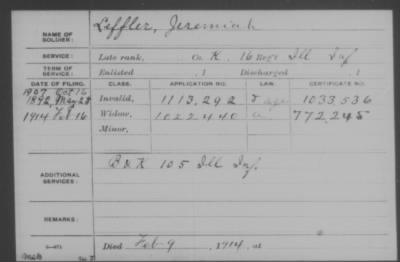 NAME OF SOLDIER: Leffler, Jeremiah
SERVICE: Late rank, Co. K 16 Reg't Ill Inf
TERM OF SERVICE: Enlisted , 1 Discharged , 1
DATE OF FILING. CLASS. APPLICATION NO. LAW. CERTIFICATE NO.
1907 Oct 16
1892, May 28 Invalid, 1113,292 1033,536
1914 Feb 16 Widow, 1022440 772,245
Minor,
ADDITIONAL SERVICES: B & K 105 Ill Inf.
REMARKS:
Died Feb-9 , 1914, at